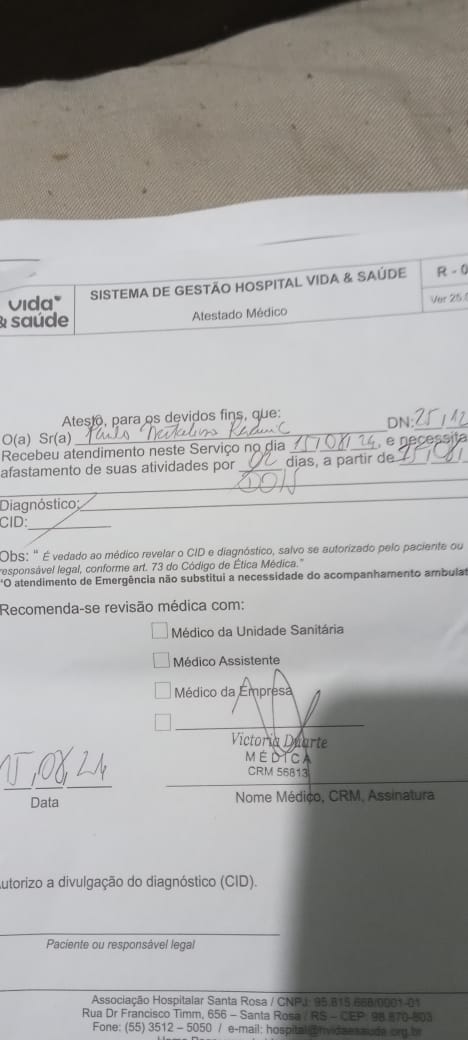 vida
& saúde
SISTEMA DE GESTÃO HOSPITAL VIDA & SAÚDE
Atestado Médico
R - 0
Ver 25.
Atesto, para os devidos fins, que:
O(a) Sr(a) Paulo DN: 25, 12
Recebeu atendimento neste Serviço no dia 15/08/24, e necessita
afastamento de suas atividades por 02 dias, a partir de 15/08/
Diagnóstico:
CID:
Obs: " É vedado ao médico revelar o CID e diagnóstico, salvo se autorizado pelo paciente ou
responsável legal, conforme art. 73 do Código de Ética Médica."
"O atendimento de Emergência não substitui a necessidade do acompanhamento ambulat
Recomenda-se revisão médica com:
Médico da Unidade Sanitária
Médico Assistente
Médico da Empresa
Victoria Duarte
MÉDICA
CRM 56813
15,08,24
Data
Nome Médico, CRM, Assinatura
utorizo a divulgação do diagnóstico (CID).
Paciente ou responsável legal
Associação Hospitalar Santa Rosa / CNPJ: 95.815.668/0001-01
Rua Dr Francisco Timm, 656 – Santa Rosa / RS – CEP: 98.870-803
Fone: (55) 3512 – 5050 / e-mail: hospital@hvidaesaude.org.br